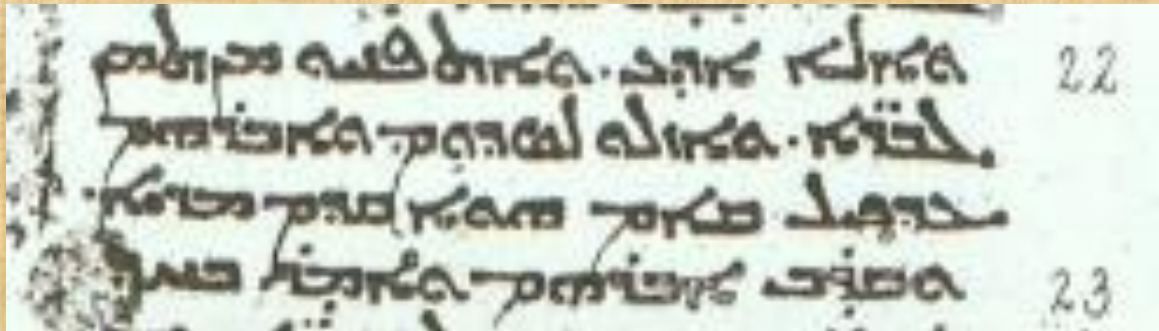 ܘܐܢ ܠܐ ܐܕܥ. ܘܐܬܦܢܝܘ ܡܢ ܬܡܢ 22
ܓܒܪ̈ܐ. ܘܐܙܠܘ ܠܣܕܘܡ ܘܐܒܪܗܡ
ܥܕܟܝܠ ܩܐܡ ܗܘܐ ܩܕܡ ܡܪܝܐ.
ܘܩܪܒ ܐܒܪܗܡ ܘܐܡܪ 23